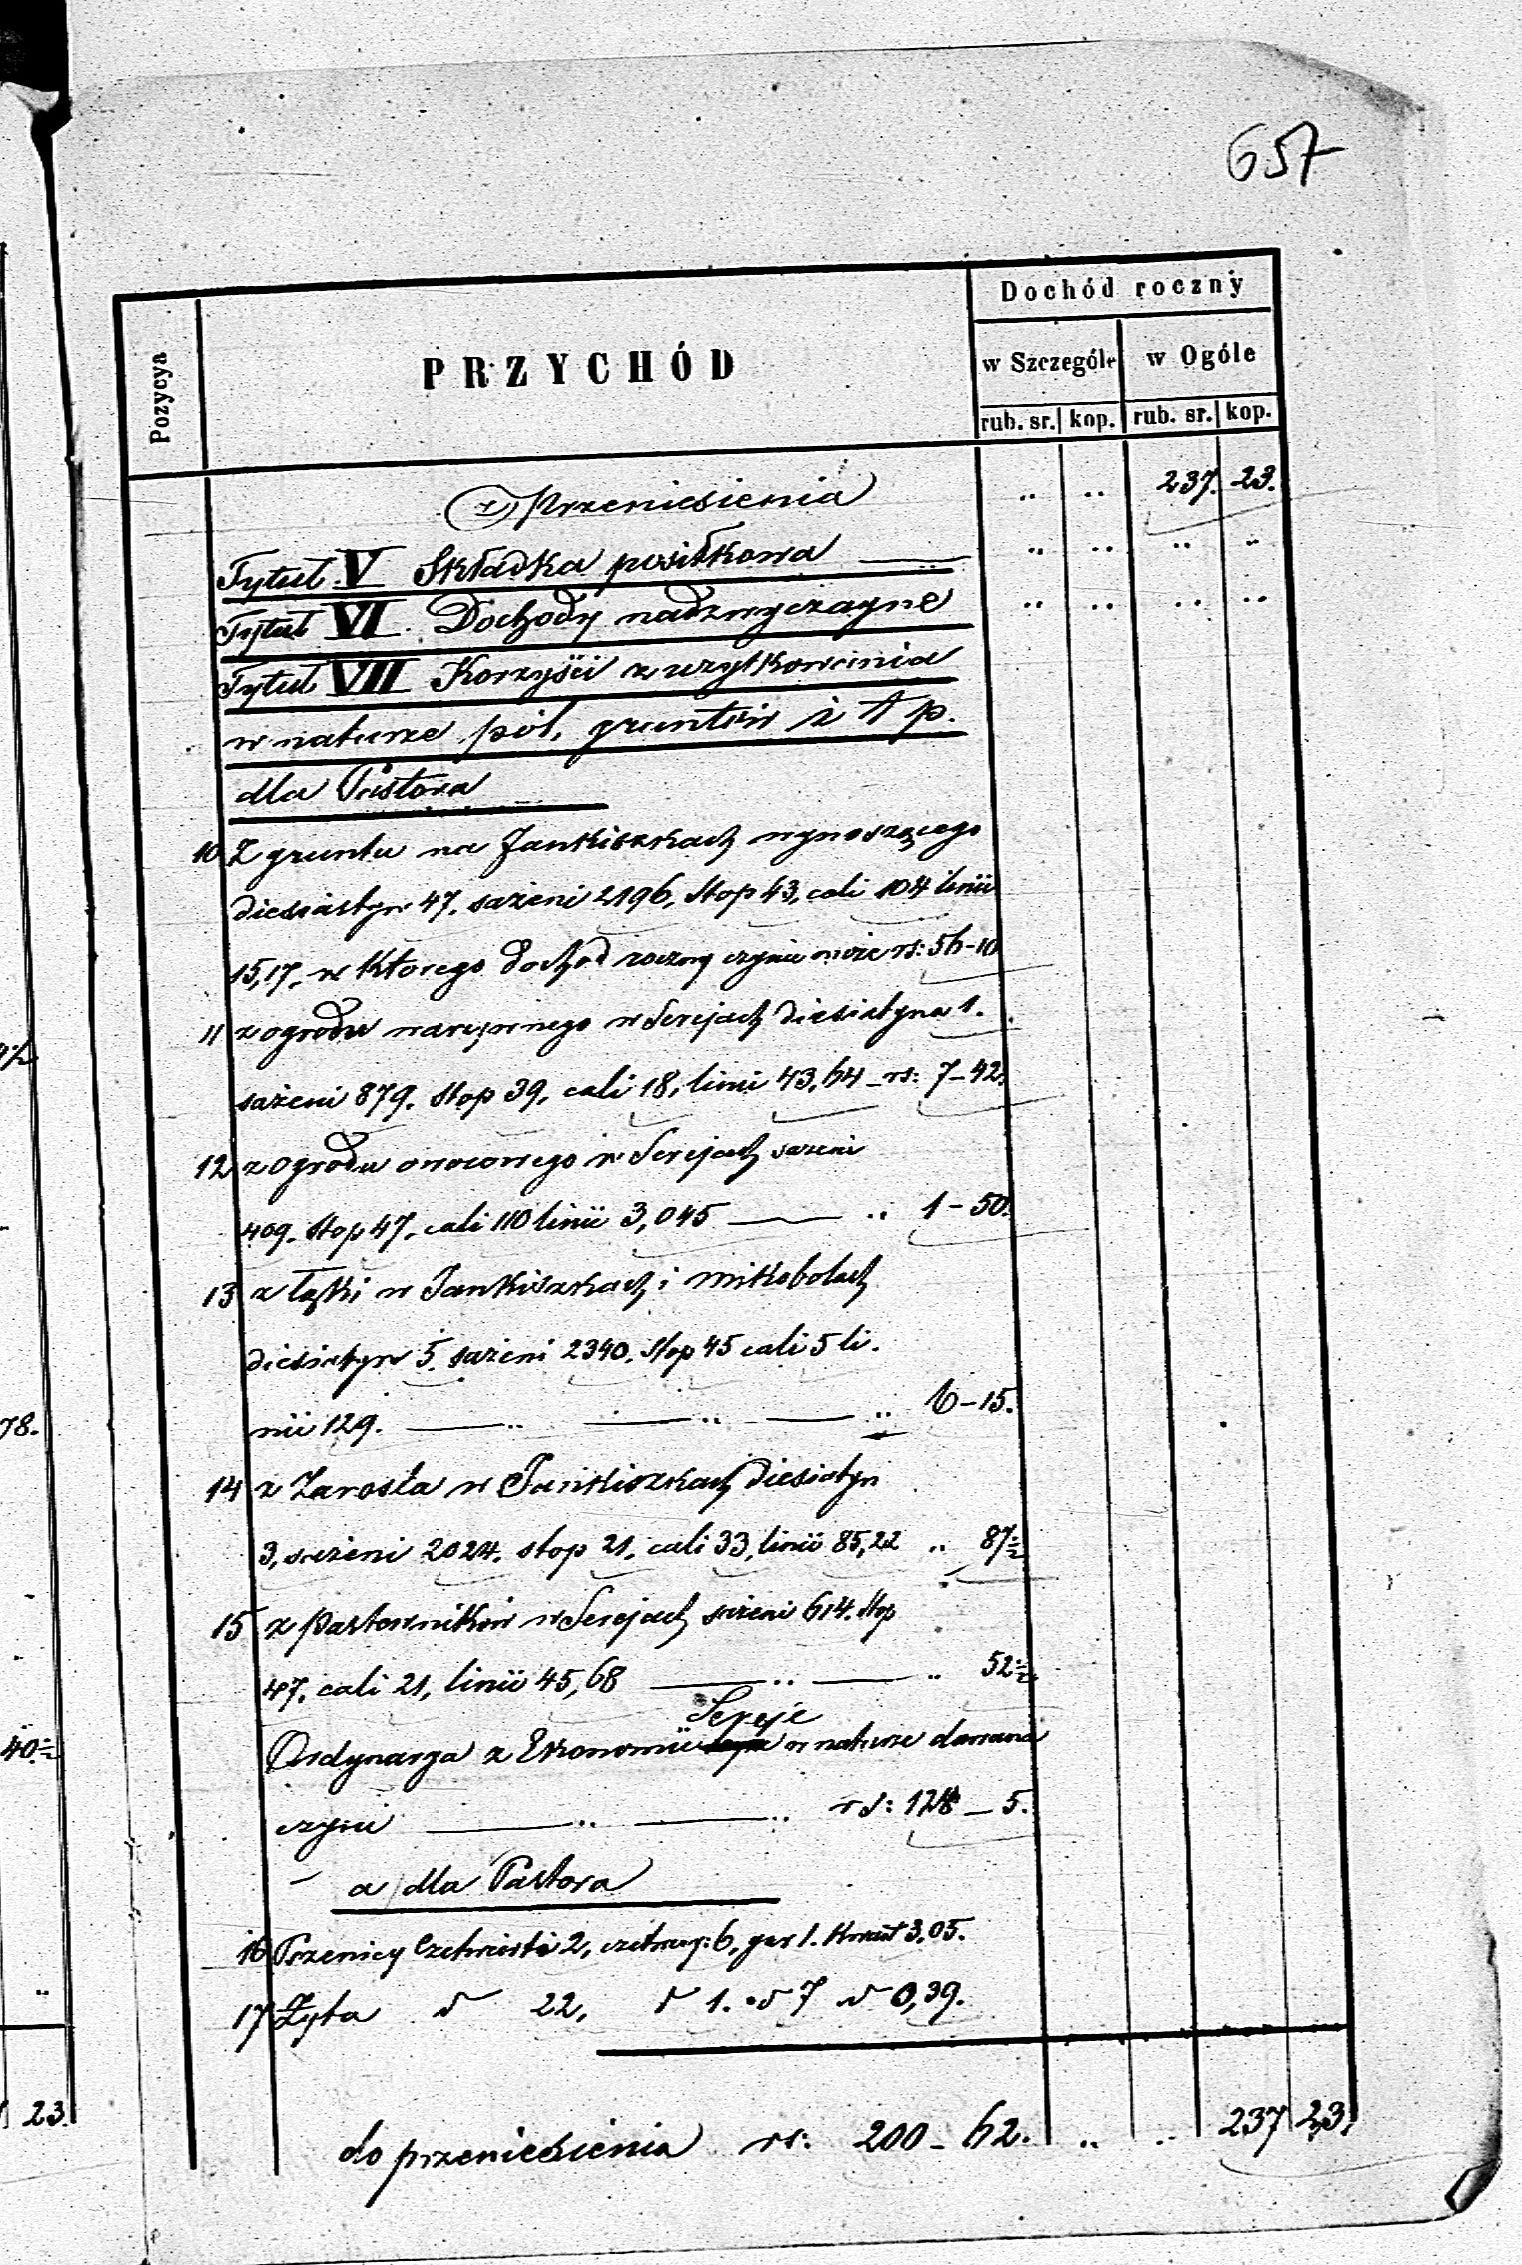 657
Dochód roczny
Pozycya
PRZYCHÓD
w Szczególe
w Ogóle
rub. sr. kop. rub. sr. kop.
z Przeniesienia .. .. 237. 23.
Tytuł V Składka posiłkowa .. .. .. ..
Tytuł VI Dochody nadzwyczayne .. .. .. ..
Tytuł VII Korzyści z użytkowania
w naturze pól, gruntów i t p.
dla Pastora
10 Z gruntu na Jankiszkach wynoszącego
diesiatyn 47. sażeni 2196, stop 43, cali 104 linii
15,17. w którego dochod roczny czynić może rs: 56-10
11 z ogrodu warzywnego w Serejach diesiatyna 1.
sażeni 879. stop 39, cali 18, linii 43,64 - rs: 7-42.
12 z ogrodu owocowego w Serejach sażeni
409. stop 47. cali 110 linii 3,045 .. 1-50.
13 z łąki w Jankiszkach i Mikobolach
diesiatyn 5. sażeni 2340. stop 45 cali 5 li.
nii 129. .. .. .. 6-15.
14 z Zarosla w Jankiszkach diesiatyn
3, sażeni 2024. stop 21. cali 33, linii 85,22 .. 87½
15 z Pastowników w Serejach sażeni 614. stop
47. cali 21, linii 45,68 .. .. 52½
Sereje
Ordynarya z Ekonomii w naturze dawana
czyni .. .. rs: 128-5.
a dla Pastora
16 Pszenicy Czetwerti 2, czetwer: 6, gar 1. kwart 3,05.
17 Żyta d 22, d 1. d 7 d 0,39.
do przeniesienia rs: 200-62. .. .. 237 23.
78.
40½
23.